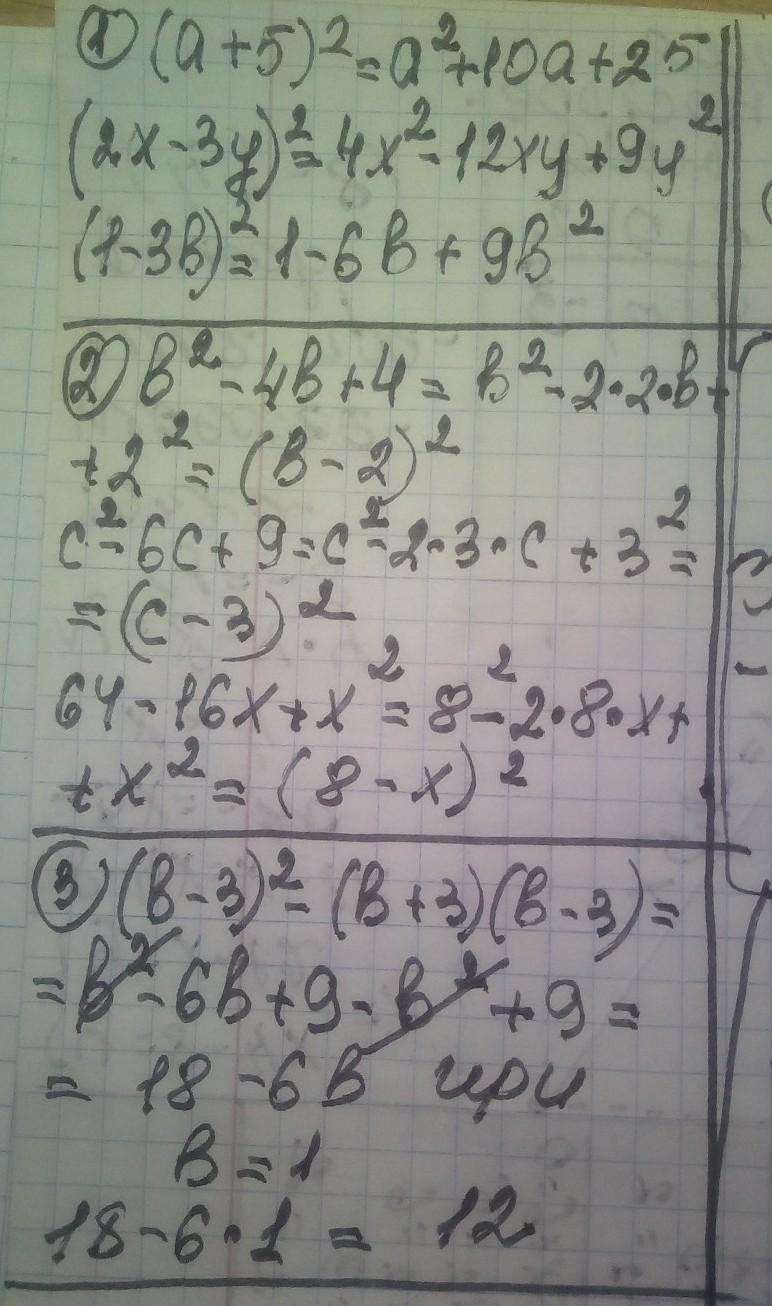 ① (a+5)² = a²+10a+25
(2x-3y)² = 4x²-12xy+9y²
(1-3b)² = 1-6b+9b²
② b²-4b+4 = b²-2·2·b+
+2² = (b-2)²
c²-6c+9 = c²-2·3·c+3² =
= (c-3)²
64-16x+x² = 8²-2·8·x+
+x² = (8-x)²
③ (b-3)² - (b+3)(b-3) =
= b²-6b+9-b²+9 =
= 18-6b при
b = 1
18-6·1 = 12